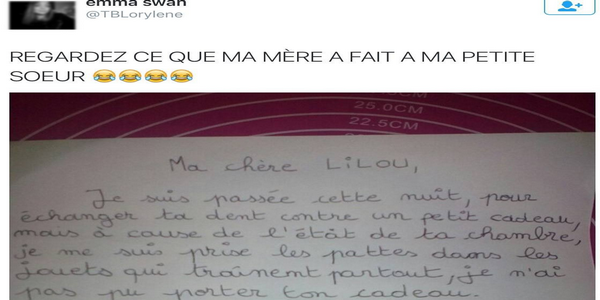 emma swan
@TBLorylene
REGARDEZ CE QUE MA MÈRE A FAIT A MA PETITE
SOEUR 😂😂😂😂
25.0CM
22.5CM
Ma chère LiLOU,
Je suis passée cette nuit, pour
échanger ta dent contre un petit cadeau,
mais à cause de l'étât de ta chambre,
je me suis prise les pattes dans les
jouets qui traînent partout, je n'ai
pas pu porter ton cadeau.